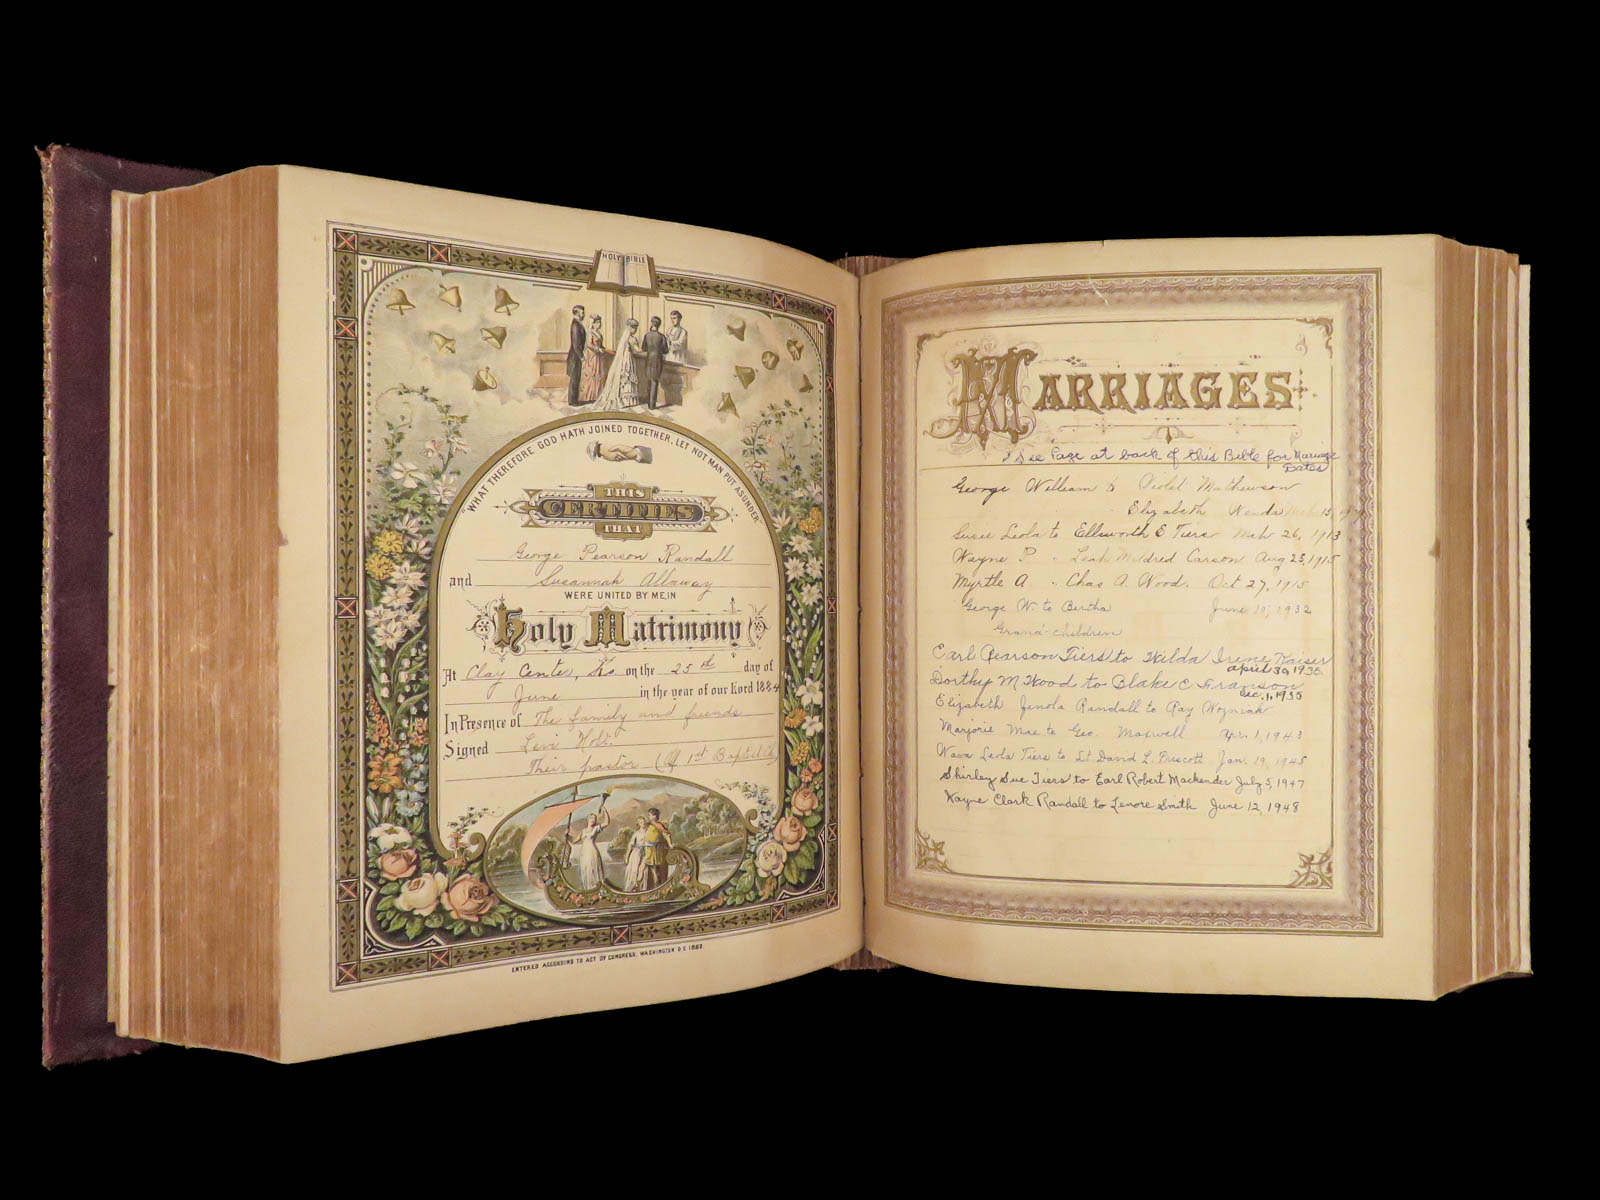 HOLY BIBLE
"WHAT THEREFORE GOD HATH JOINED TOGETHER, LET NOT MAN PUT ASUNDER"
THIS
CERTIFIES
THAT
George Pearson Randall
and Susannah Allaway
WERE UNITED BY ME, IN
Holy Matrimony
At Clay Center, Ks on the 25th day of
June in the year of our Lord 1884
In Presence of The family and friends
Signed Levi Holt.
Their pastor (Of 1st Baptist Ch
ENTERED ACCORDING TO ACT OF CONGRESS, WASHINGTON D.C. 1882.
MARRIAGES
See Page at back of this Bible for Marriage
Dates
George William to Violet Mathewson
Elizabeth
Susie Leola to Ellsworth E Tiers Mch 26, 1913
Wayne P. Leah Mildred Carson Aug 25, 1915
Myrtle A. Chas A. Wood. Oct 27, 1915
George W. to Bertha June 10, 1932
Grand-children
Earl Pearson Tiers to Hilda Irene Kaiser
April 30, 1935
Dorthy M Wood to Blake C Franson
Dec. 1, 1935
Elizabeth Jenola Randall to Ray Wozniak
Marjorie Mae to Geo. Maxwell Apr. 1, 1943
Wava Leola Tiers to Lt. David L. Prescott Jan. 19, 1945
Shirley Sue Tiers to Earl Robert Mackender July 5, 1947
Wayne Clark Randall to Lenore Smith June 12, 1948